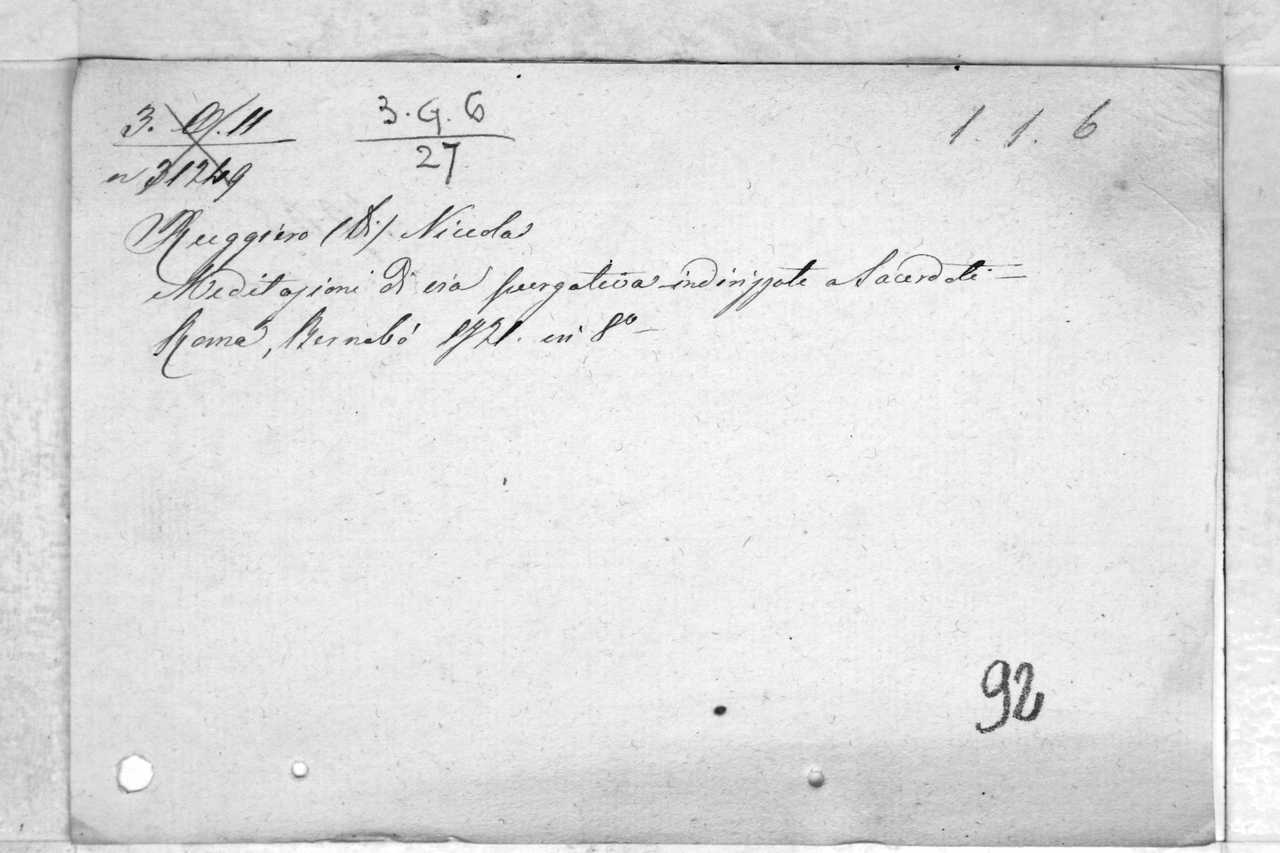 3. G. 11
3. G. 6
1. 1. 6
n 31249
27
Ruggiero (Di) Nicola
Meditazioni di via purgativa indirizzate a Sacerdoti =
Roma, Bernabò 1721. in 8º
92